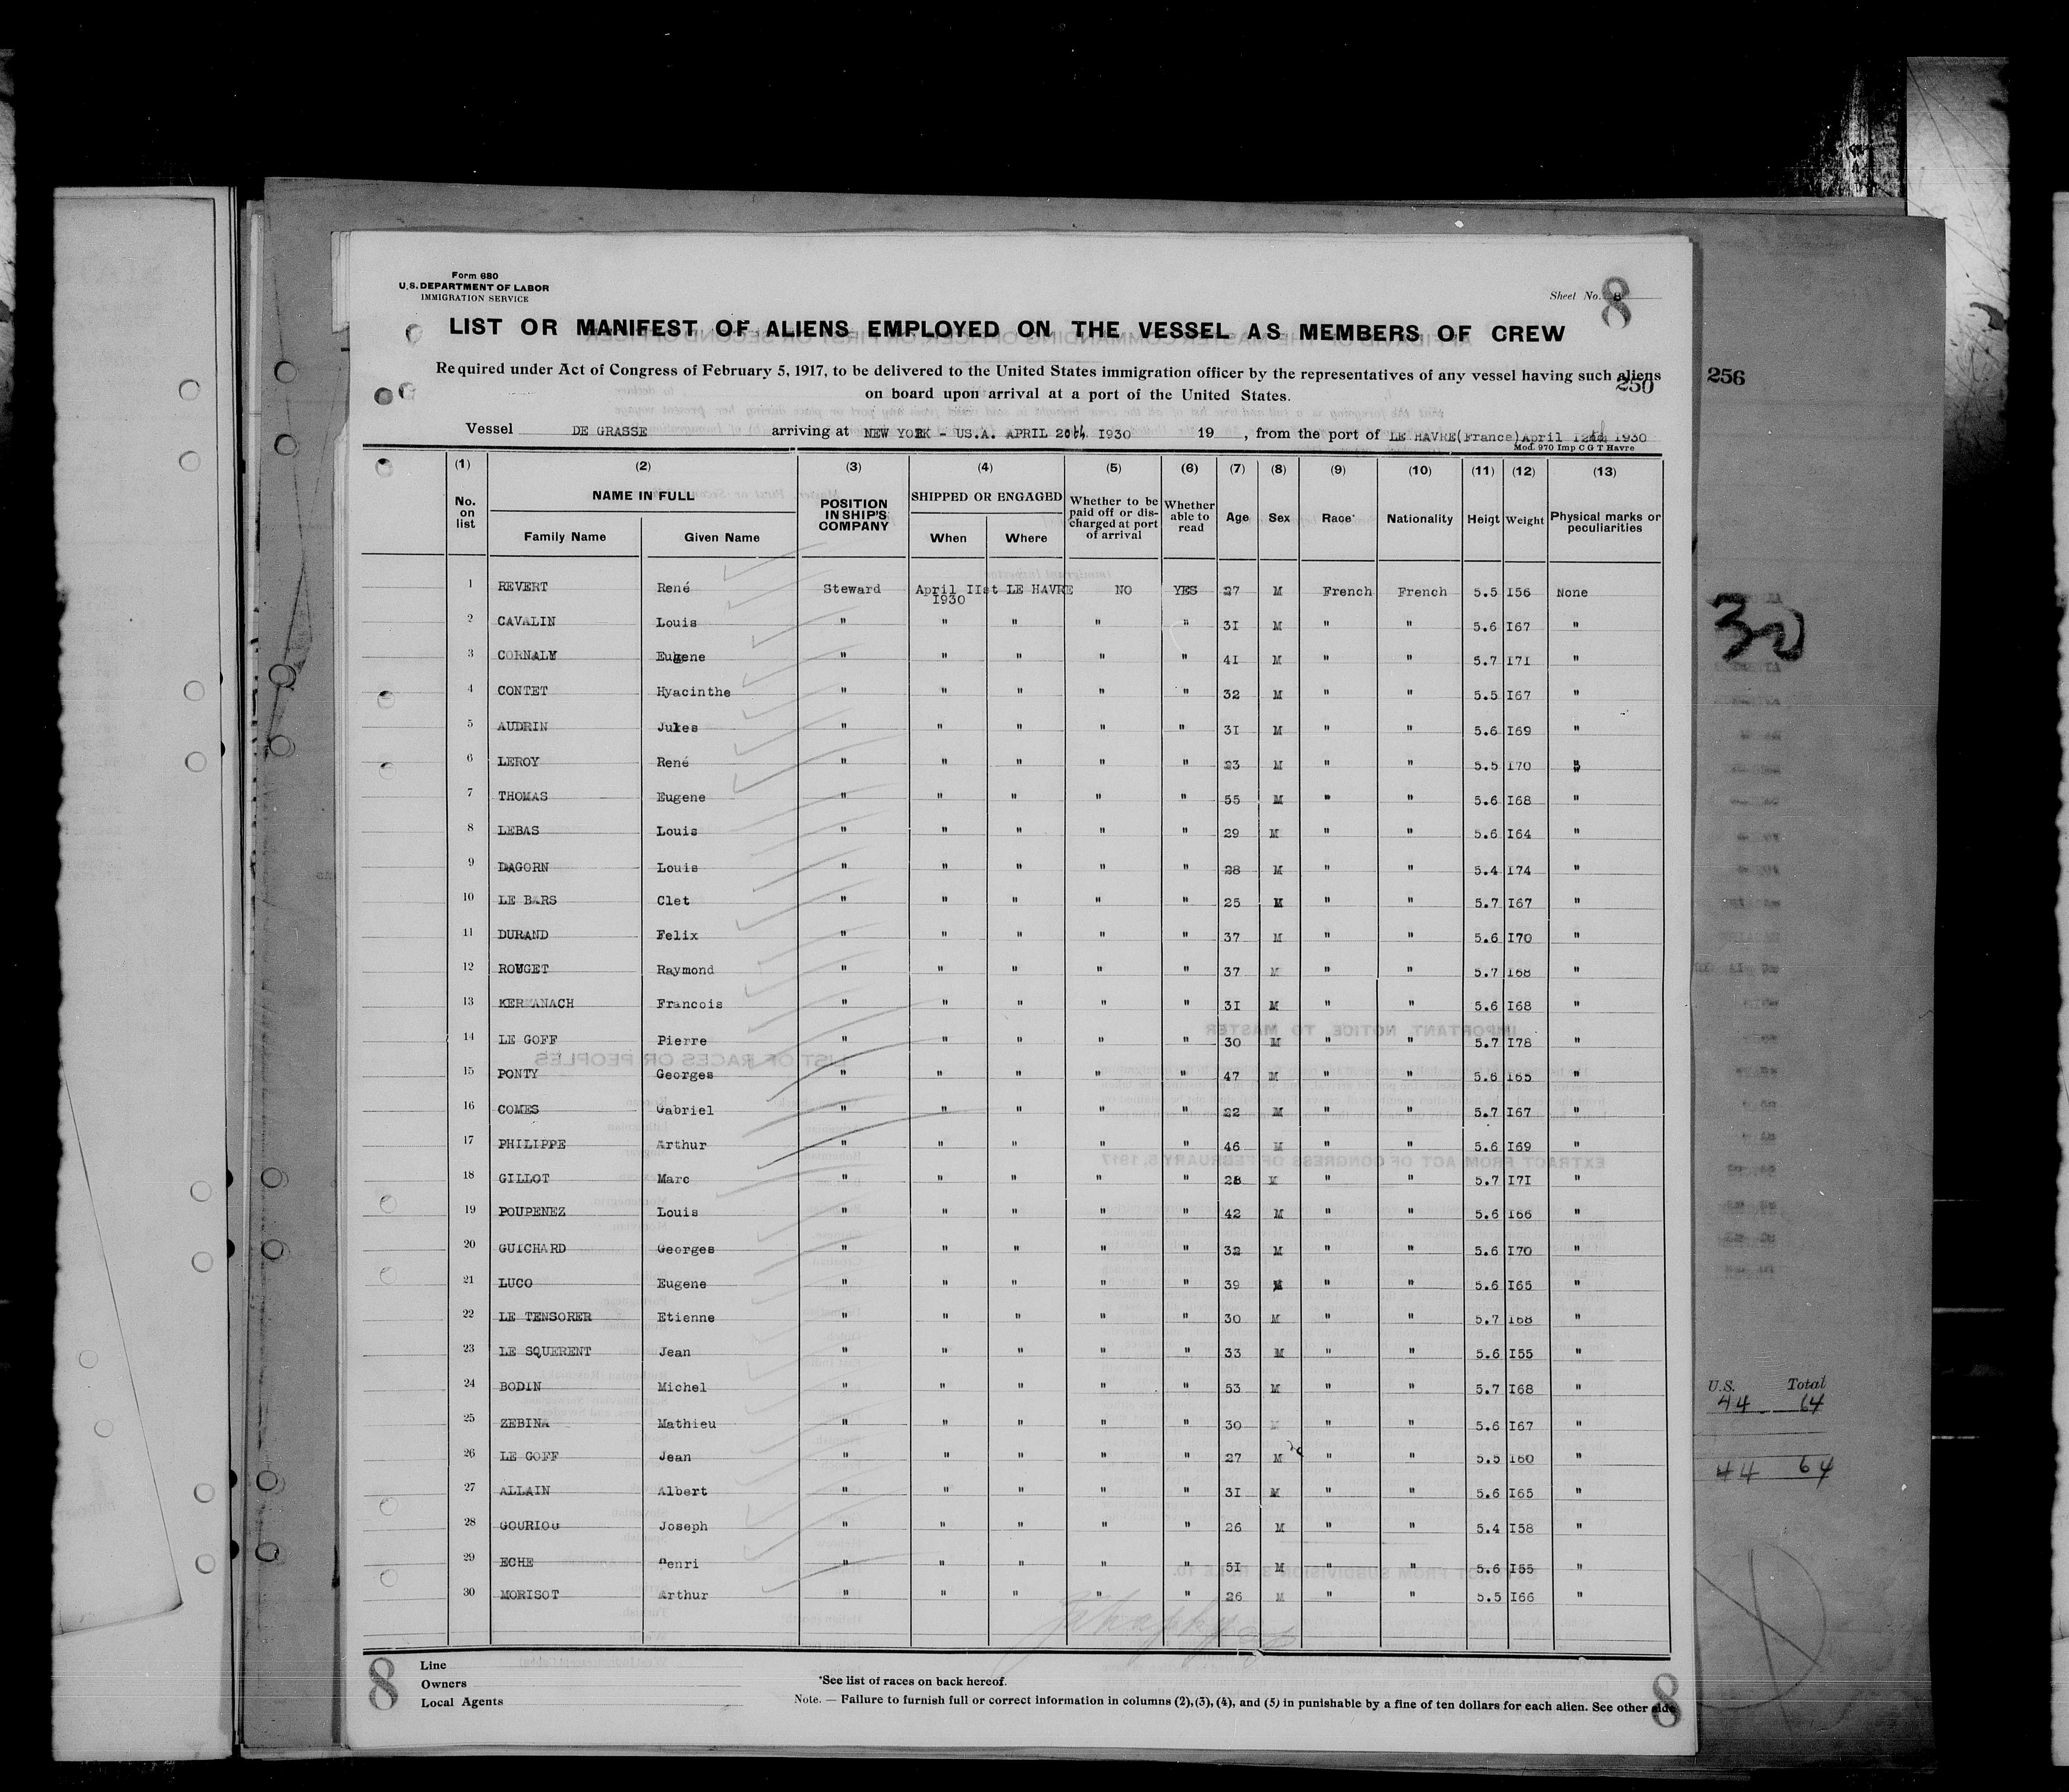 Form 680
U.S. DEPARTMENT OF LABOR
IMMIGRATION SERVICE
Sheet No. 8
8
LIST OR MANIFEST OF ALIENS EMPLOYED ON THE VESSEL AS MEMBERS OF CREW
Required under Act of Congress of February 5, 1917, to be delivered to the United States immigration officer by the representatives of any vessel having such aliens
on board upon arrival at a port of the United States.
250
256
Vessel DE GRASSE arriving at NEW YORK - US.A. APRIL 20th, 1930 19 , from the port of LE HAVRE(France)April 12th 1930
Mod. 970 Imp C G T Havre
(1) (2) (3) (4) (5) (6) (7) (8) (9) (10) (11) (12) (13)
No. on list NAME IN FULL Family Name Given Name POSITION IN SHIP'S COMPANY SHIPPED OR ENGAGED When Where Whether to be paid off or discharged at port of arrival Whether able to read Age Sex Race* Nationality Heigt Weight Physical marks or peculiarities
1 REVERT René Steward April IIst 1930 LE HAVRE NO YES 27 M French French 5.5 I56 None
2 CAVALIN Louis " " " " " 3I M " " 5.6 I67 "
3 CORNALY Eugene " " " " " 4I M " " 5.7 I7I "
4 CONTET Hyacinthe " " " " " 32 M " " 5.5 I67 "
5 AUDRIN Jules " " " " " 3I M " " 5.6 I69 "
6 LEROY René " " " " " 23 M " " 5.5 I70 "
7 THOMAS Eugene " " " " " 55 M " " 5.6 I68 "
8 LEBAS Louis " " " " " 29 M " " 5.6 I64 "
9 DAGORN Louis " " " " " 28 M " " 5.4 I74 "
10 LE BARS Clet " " " " " 25 M " " 5.7 I67 "
11 DURAND Felix " " " " " 37 M " " 5.6 I70 "
12 ROUGET Raymond " " " " " 37 M " " 5.7 I68 "
13 KERMANACH Francois " " " " " 3I M " " 5.6 I68 "
14 LE GOFF Pierre " " " " " 30 M " " 5.7 I78 "
15 PONTY Georges " " " " " 47 M " " 5.6 I65 "
16 COMES Gabriel " " " " " 22 M " " 5.7 I67 "
17 PHILIPPE Arthur " " " " " 46 M " " 5.6 I69 "
18 GILLOT Marc " " " " " 28 M " " 5.7 I7I "
19 POUPENEZ Louis " " " " " 42 M " " 5.6 I66 "
20 GUICHARD Georges " " " " " 32 M " " 5.6 I70 "
21 LUCO Eugene " " " " " 39 M " " 5.6 I65 "
22 LE TENSORER Etienne " " " " " 30 M " " 5.7 I68 "
23 LE SQUERENT Jean " " " " " 33 M " " 5.6 I55 "
24 BODIN Michel " " " " " 53 M " " 5.7 I68 "
25 ZEBINA Mathieu " " " " " 30 M " " 5.6 I67 "
26 LE GOFF Jean " " " " " 27 M " " 5.5 I60 "
27 ALLAIN Albert " " " " " 3I M " " 5.6 I65 "
28 GOURIOU Joseph " " " " " 26 M " " 5.4 I58 "
29 ECHE Henri " " " " " 5I M " " 5.6 I55 "
30 MORISOT Arthur " " " " " 26 M " " 5.5 I66 "
30
U.S. Total
44 64
44 64
8
Line
Owners
Local Agents
*See list of races on back hereof.
Note. — Failure to furnish full or correct information in columns (2), (3), (4), and (5) in punishable by a fine of ten dollars for each alien. See other side
8